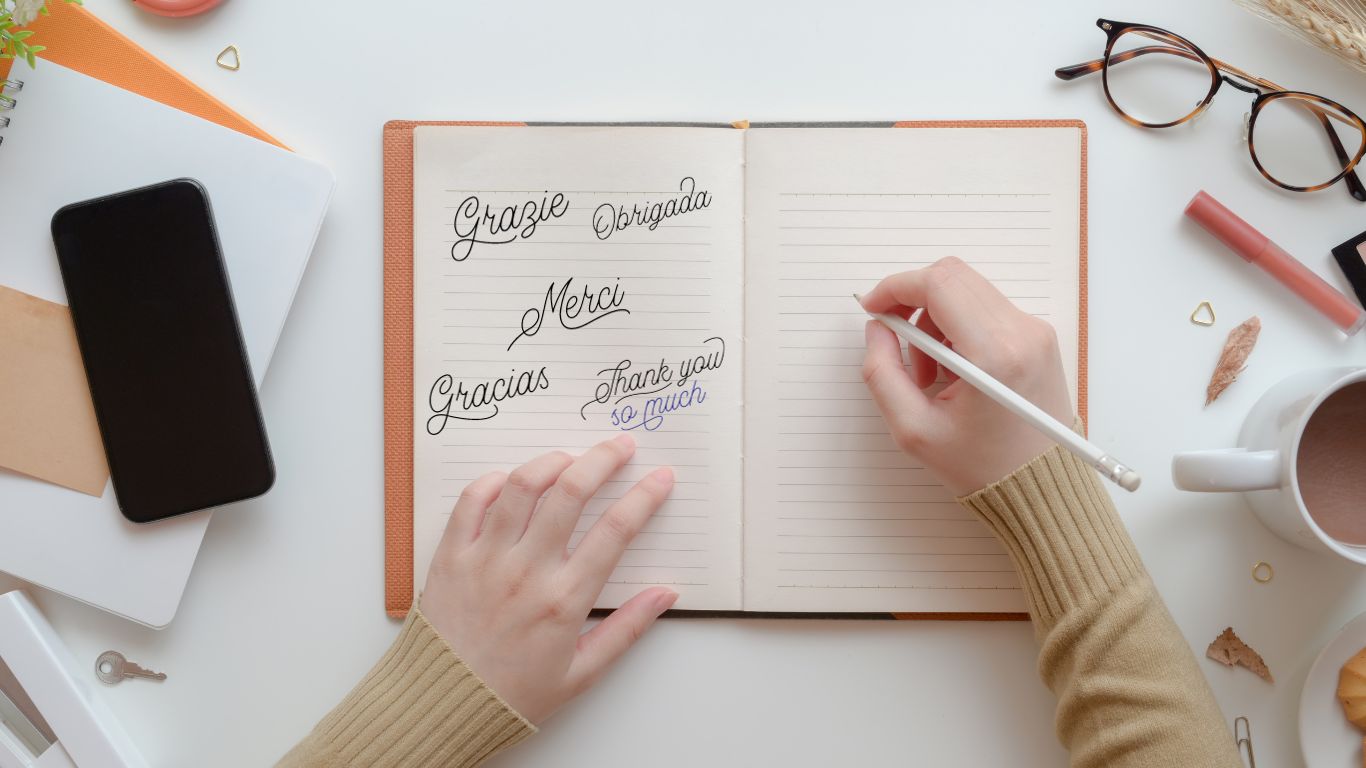 Grazie
Obrigada
Merci
Gracias
Thank you
so much